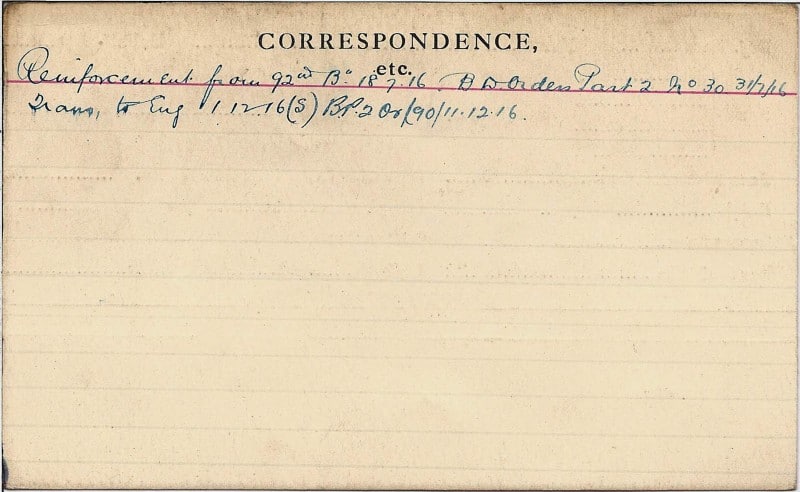 CORRESPONDENCE,
etc.
Reinforcement from 92nd Bn 18.7.16. B D Orders Part 2 No 30 31/7/16
Trans, to Eng 1.12.16 (S) B.P. 2 Or/190/11.12.16.